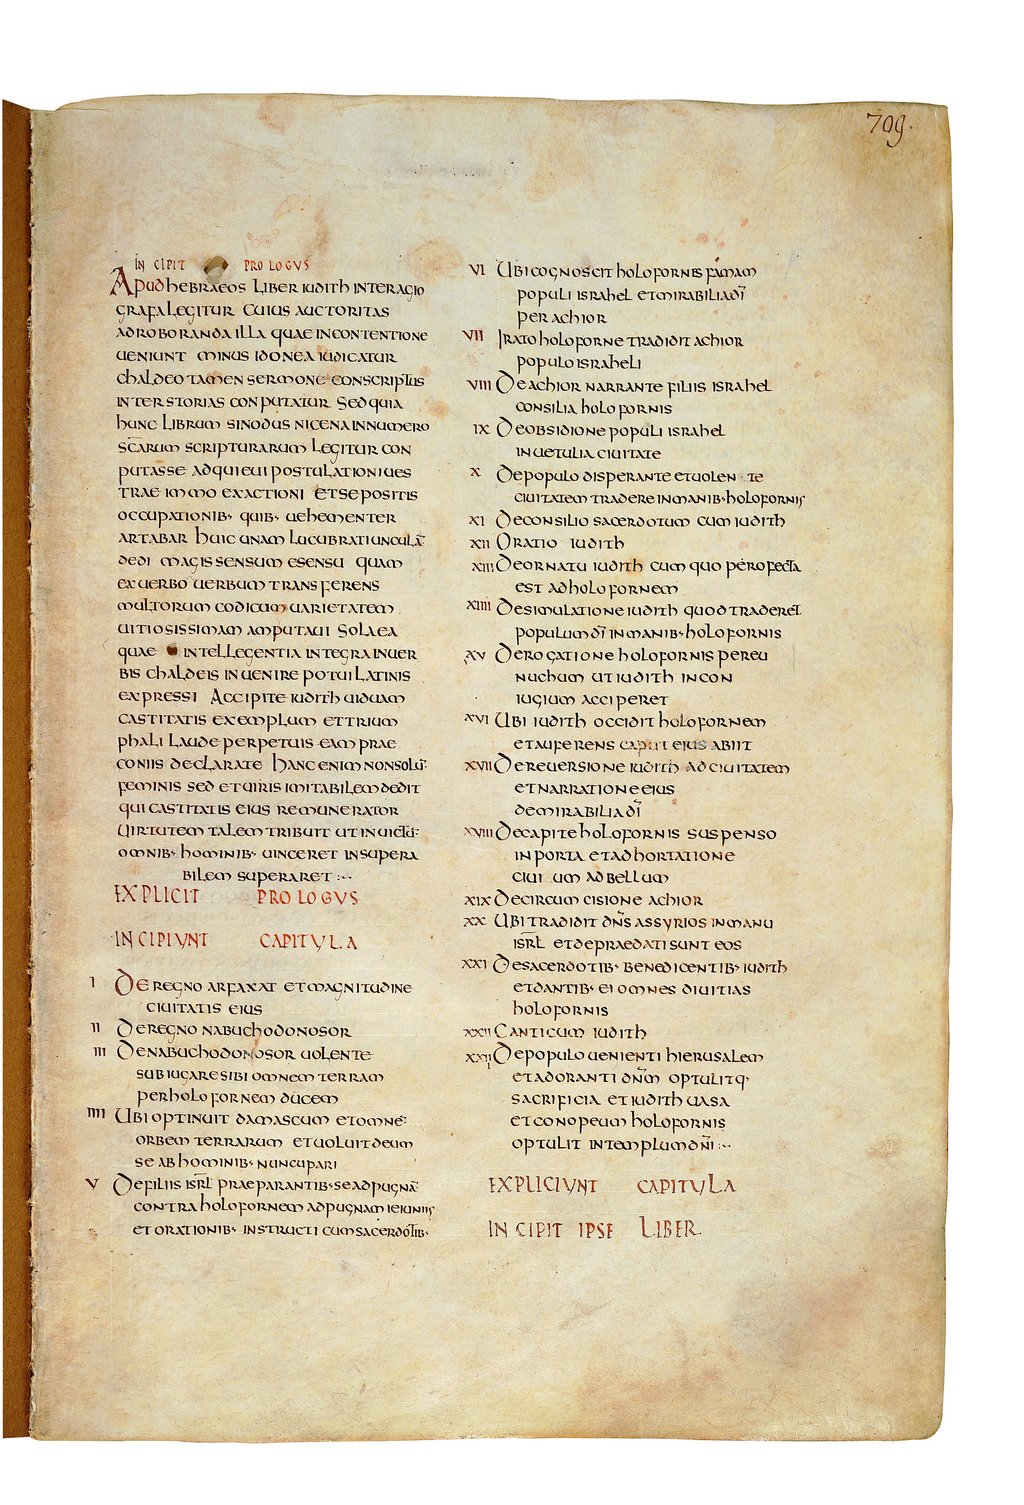 709.
IN CIPIT PROLOGUS
Apud hebraeos liber iudith inter agio
grafa legitur cuius auctoritas
ad roboranda illa quae in contentione
ueniunt minus idonea iudicatur
chaldeo tamen sermone conscriptus
inter storias conputatur sed quia
hunc librum sinodus nicena in numero
scārum scripturarum legitur con
putasse adquieui postulationi ues
trae immo exactioni et sepositis
occupationib· quib· uehementer
artabar huic unam lucubratiunculā
dedi magis sensum e sensu quam
ex uerbo uerbum transferens
multorum codicum uarietatem
uitiosissimam amputaui sola ea
quae intellegentia integra in uer
bis chaldeis inuenire potui latinis
expressi Accipite iudith uiduam
castitatis exemplum et trium
phali laude perpetuis eam prae
coniis declarate hanc enim non solū
feminis sed et uiris imitabilem dedit
qui castitatis eius remunerator
uirtutem talem tribuit ut inuictū
omnib· hominib· uinceret insupera
bilem superaret :~
EXPLICIT PROLOGUS
INCIPIUNT CAPITULA
I De regno arfaxat et magnitudine
ciuitatis eius
II De regno nabuchodonosor
III De nabuchodonosor uolente
subiugare sibi omnem terram
per holofornem ducem
IIII Ubi optinuit damascum et omnē
orbem terrarum et uoluit deum
se ab hominib· nuncupari
V De filiis isrl praeparantib· se ad pugnā
contra holofornem ad pugnam ieiuniis
et orationib· instructi cum sacerdotib·
VI Ubi cognoscit holofornis famam
populi israhel et mirabilia dī
per achior
VII Irato holoforne tradidit achior
populo israheli
VIII De achior narrante filiis israhel
consilia holofornis
IX De obsidione populi israhel
in uetulia ciuitate
X De populo disperante et uolente
ciuitatem tradere in manib· holofornis
XI De consilio sacerdotum cum iudith
XII Oratio iudith
XIII De ornatu iudith cum quo perofecta
est ad holofornem
XIIII De simulatione iudith quod traderet
populum dī in manib· holofornis
XV De rogatione holofornis per eu
nuchum ut iudith in con
iugium acciperet
XVI Ubi iudith occidit holofornem
et auferens caput eius abiit
XVII De reuersione iudith ad ciuitatem
et narratione eius
de mirabilia dī
XVIII De capite holofornis suspenso
in porta et adhortatione
ciui um ad bellum
XIX De circumcisione achior
XX Ubi tradidit dns assyrios in manu
isrl et depraedati sunt eos
XXI De sacerdotib· benedicentib· iudith
et dantib· ei omnes diuitias
holofornis
XXII Canticum iudith
XXIII De populo uenienti hierusalem
et adoranti dnm optulitq·
sacrificia et iudith uasa
et conopeum holofornis
optulit in templum dni :~
EXPLICIUNT CAPITULA
INCIPIT IPSE LIBER